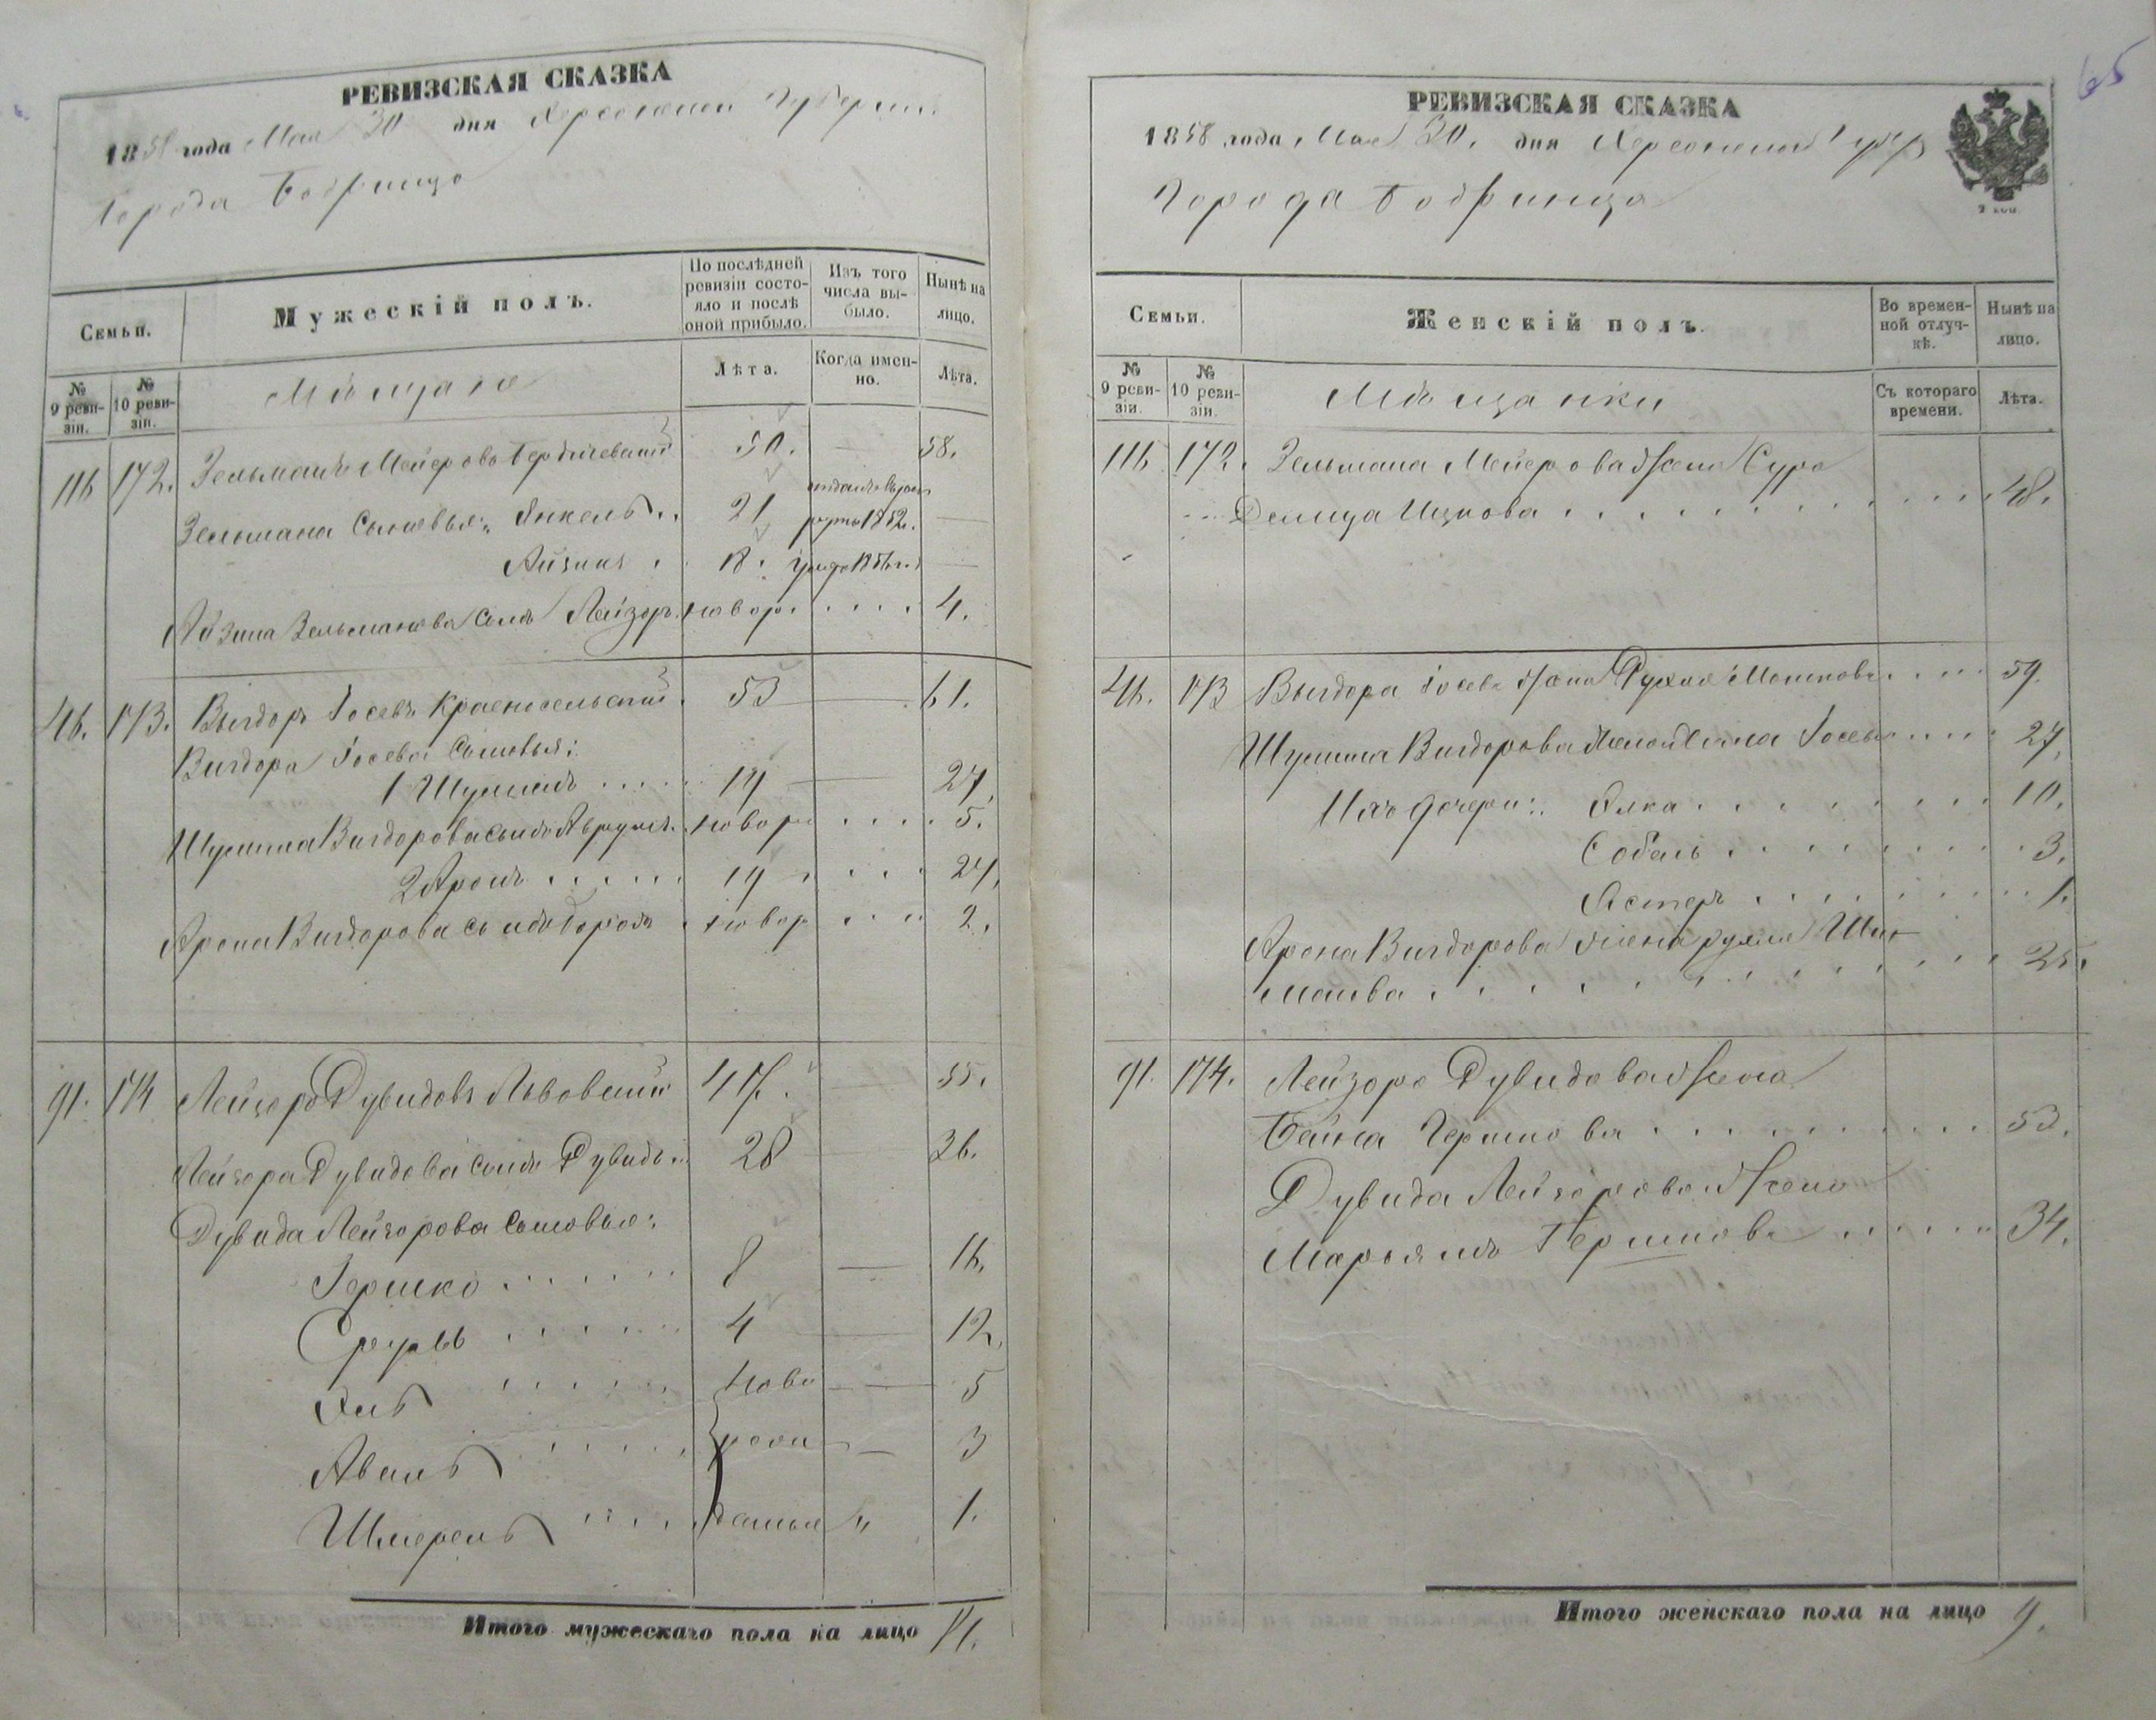 65
РЕВИЗСКАЯ СКАЗКА
1858 года Мая 30 дня Херсонской Губернии
Города Бобринца
Семьи.
Мужескій полъ.
По послѣдней ревизіи состояло и послѣ оной прибыло.
Изъ того числа выбыло.
Нынѣ на лицо.
№ 9 ревизіи.
№ 10 ревизіи.
Мѣщане
Лѣта.
Когда именно.
Лѣта.
116 172. Зельманъ Мейеровъ Бердичевскій 50. 58.
Зельмана Сыновья: Янкель 21 1852.
Айзикъ 18. 
Айзика Зельманова сынъ Лейзоръ новор. 4.
46. 173. Выгдоръ Іосевъ Красносельскій 53 61.
Вигдора Іосева Сыновья:
1 Шулимъ 19 27.
Шулима Вигдорова сынъ Авrумъ новор 5.
2 Аронъ 19 27.
Арона Вигдорова сынъ новор 2.
91. 174 Лейзоръ Дувидовъ Львовскій 47. 55.
Лейзора Дувидова сынъ Дувидъ 28 36.
Дувида Лейзорова сыновья:
Гершко 8 16.
Сруль 4 12.
ново 5
рож 3
Шмерель денные 1.
Итого мужескаго пола на лицо 14.
РЕВИЗСКАЯ СКАЗКА
1858 года Мая 30. дня Херсонской Губер
Города Бобринца
2 коп.
Семьи.
Женскій полъ.
Во временной отлучкѣ.
Нынѣ на лицо.
№ 9 ревизіи.
№ 10 ревизіи.
Мѣщанки
Съ котораго времени.
Лѣта.
116 172. Зельмана Мейерова жена Сура
Ицкова 48.
46. 173 Выгдора Іосева жена Рухля Мошкова 59.
Шулима Вигдорова жена Іосева 27.
Ихъ дочери: 10.
Собель 3.
Эстеръ 1.
Арона Вигдорова жена Рухля
25.
91. 174. Лейзора Дувидова жена
Бейла Гершкова 53.
Дувида Лейзорова жена
Марьямъ Гершкова 34.
Итого женскаго пола на лицо 9.